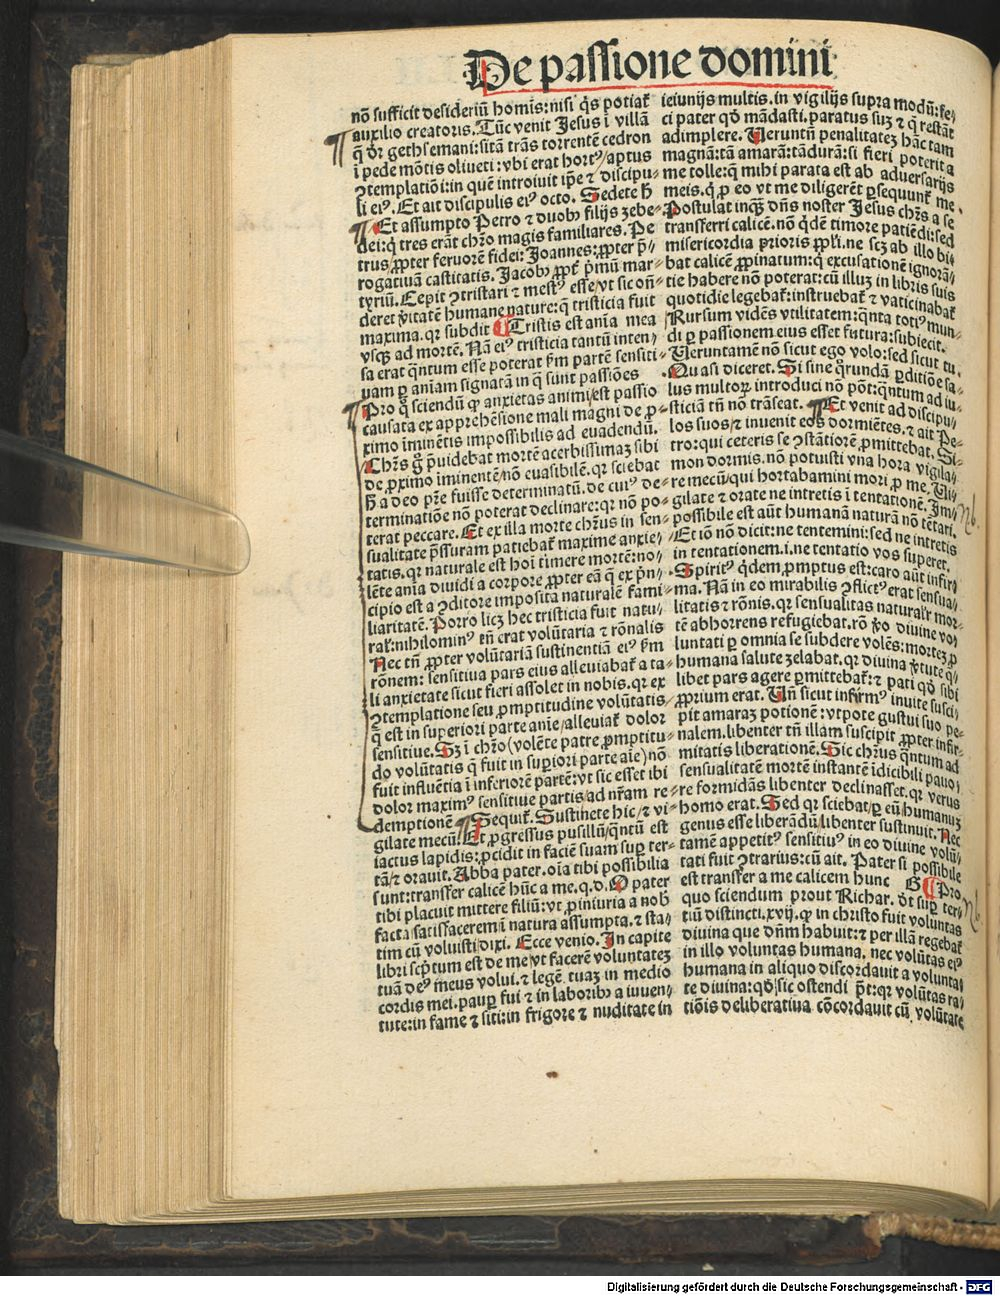 De passione domini
nō sufficit desideriū homīs: nisi q̄s potiat᷑
auxilio creatoris. Tūc venit Jesus ī villā
q̄ dr̄ gethsemani: sitā trās torrentē cedron
ī pede mōtis oliueti: vbi erat hortꝰ/ aptus
ꝯtemplatiōi: in quē introiuit ip̄e ⁊ discipu-
li eiꝰ. Et ait discipulis eiꝰ octo. Sedete h̄
Et assumpto Petro ⁊ duobꝫ filijs zebe-
dei: q̄ tres erāt chr̄o magis familiares. Pe
trus/ ꝓpter feruorē fidei: Joannes: ꝓpter p̄-
rogatiuā castitatis. Jacobꝰ/ ꝓpt᷑ p̄mū mar-
tyriū. Cepit ꝯtristari ⁊ mestꝰ esse/ vt sic oñ-
deret v̓itatē humane nature: q̄ tristicia fuit
maxima. qꝛ subdit Tristis est aīa mea
vsqꝫ ad mortē. Nā eiꝰ tristicia tantū inten-
sa erat q̄ntum esse poterat ẜm partē sensiti-
uam ꝑ aīam signatā in q̄ sunt passiōes
Pro q̄ sciendū ꝙ anxietas animi/ est passio
causata ex apprehēsione mali magni de ꝓ-
ximo īminētis impossibilis ad euadendū.
Chr̄s g̊ p̄uidebat mortē acerbissimaꝫ sibi
de ꝓximo iminentē/ nō euasibilē. qꝛ sciebat
h̄ a deo pr̄e fuisse determinatū. de cuiꝰ de-
terminatiōe nō poterat declinare: qꝛ nō po-
terat peccare. Et ex illa morte chr̄us in sen-
sualitate p̄ssuram patiebat᷑ maxime anxie-
tatis. qꝛ naturale est hoī timere mortē: no-
lēte aīa diuidi a corpore ꝓpter eā q̄ ex p̄n-
cipio est a ꝯditore imposita naturalē fami-
liaritatē. Porro licꝫ hec tristicia fuit natu-
ral᷑: nihilominꝰ tn̄ erat volūtaria ⁊ rōnalis
Nec tn̄ ꝓpter volūtariā sustinentiā eiꝰ ẜm
rōnem: sensitiua pars eius alleuiabat᷑ a ta-
li anxietate sicut fieri assolet in nobis. qꝛ ex
ꝯtemplatione seu ꝓmptitudine volūtatis
q̄ est in superiori parte anīe/ alleuiat᷑ dolor
sensitiue. Sꝫ ī chr̄o (volēte patre ꝓmptitu-
do volūtatis q̄ fuit in suꝑiori parte aīe) nō
fuit influētia ī inferiorē partē: vt sic esset ibi
dolor maximꝰ sensitiue partis/ ad nr̄am re-
demptionē Sequit᷑. Sustinete hic/ ⁊ vi-
gilate mecū. Et ꝓgressus pusillū/ q̄ntū est
iactus lapidis: ꝓcidit in faciē suam suꝑ ter-
rā/ ⁊ orauit. Abba pater. oīa tibi possibilia
sunt: transfer calicē hūc a me. q.d. O pater
tibi placuit mittere filiū: vt ꝓ iniuria a nob̄
facta satisfacerem ī natura assumpta. ⁊ sta-
tim cū voluisti dixi. Ecce venio. In capite
libri scp̄tum est de me/ vt facerē voluntatez
tuā deꝰ meus volui. ⁊ legē tuaꝫ in medio
cordis mei. pauꝑ fui ⁊ in laboribꝫ a iuuen-
tute: in fame ⁊ siti: in frigore ⁊ nuditate in
ieiunijs multis. in vigilijs supra modū: fe-
ci pater qd̄ mādasti. paratus suꝫ ⁊ q̄ restāt
adimplere. Veruntn̄ penalitatez hāc tam
magnā: tā amarā: tā durā: si fieri poterit a
me tolle: q̄ mihi parata est ab aduersarijs
meis. q̄ ꝓ eo vt me diligerēt ꝑsequunt᷑ me.
Postulat inq̄t dn̄s noster Jesus chr̄s a se
transferri calicē. nō q̄dē timore patiēdi: sed
misericordia prioris pp̄li. ne scꝫ ab illo bi-
bat calicē ꝓpinatum: q̄ excusationē ignorā-
tie habere nōn poterat: cū illuꝫ in libris suis
quotidie legebat᷑: instruebat᷑ ⁊ vaticinabat᷑
Rursum vidēs vtilitatem: q̄nta totiꝰ mun-
di ꝑ passionem eius esset futura: subiecit.
Veruntamē nō sicut ego volo: sed sicut tu.
Quasi diceret. Si sine q̄rundā ꝑditiōe sa-
lus multoꝝ introduci nō pōt: q̄ntum ad iu-
sticiā tn̄ nō trāseat. Et venit ad discipu-
los suos/ ⁊ inuenit eos dormiētes. ⁊ ait Pe-
tro: qui ceteris se ꝯstātiorē ꝓmittebat. Si-
mon dormis. nō potuisti vna hora vigila-
re mecū/ qui hortabamini mori ꝓ me. Vi-
gilate ⁊ orate ne intretis ī tentationē. Im-
possibile est aūt humanā naturā nō tētari.
Et iō nō dicit: ne tentemini: sed ne intretis
in tentationem. i. ne tentatio vos superet.
Spiritꝰ q̄dem ꝓmptus est: caro aūt infir-
ma. Nā in eo mirabilis ꝯflictꝰ erat sensua-
litatis ⁊ rōnis. qꝛ sensualitas naturalr̄ mor-
tē abhorrens refugiebat. rō v̓o diuine vo-
luntati ꝑ omnia se subdere volēs: mortez ꝓ
humana salute zelabat. qꝛ diuina v̓tute q̄-
libet pars agere ꝑmittebat᷑: ⁊ pati qd̄ sibi
ꝓprium erat. Vn̄ sicut infirmꝰ inuite susci-
pit amaraꝫ potionē: vtpote gustui suo pe-
nalem. libenter tn̄ illam suscipit ꝓpter infir-
mitatis liberationē. Sic chr̄us q̄ntum ad
sensualitatē mortē instantē īdicibili pauo-
re formidās libenter declinasset. qꝛ verus
homo erat. Sed qꝛ sciebat/ ꝑ eū/ humanuz
genus esse liberādū/ libenter sustinuit. Nec
tamē appetitꝰ sensitiuꝰ in eo diuine volū-
tati fuit ꝯtrarius: cū ait. Pater si possibile
est transfer a me calicem hunc G Pro
quo sciendum prout Richar. dt̄ suꝑ ter-
tiū distincti. xvij. ꝙ in christo fuit voluntas
diuina que dn̄m habuit: ⁊ per illā regebat᷑
in illo voluntas humana. nec volūtas eiꝰ
humana in aliquo discordauit a volunta-
te diuina: qd̄ sic ostendi pōt: qꝛ volūtas ra-
tiōis deliberatiua cōcordauit cū volūtate
Nb.
Nb.
Digitalisierung gefördert durch die Deutsche Forschungsgemeinschaft - DFG